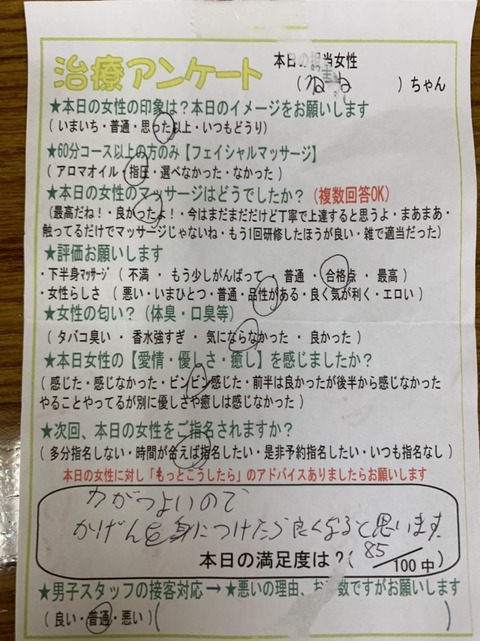 治療アンケート
本日の担当女性
(ねね)ちゃん
★本日の女性の印象は?本日のイメージをお願いします
(いまいち・普通・思った以上・いつもどうり)
★60分コース以上の方のみ【フェイシャルマッサージ】
(アロマオイル・指圧・選べなかった・なかった)
★本日の女性のマッサージはどうでしたか?(複数回答OK)
(最高だね!・良かったよ!・今はまだまだだけど丁寧で上達すると思うよ・まあまあ・
触ってるだけでマッサージじゃないね・もう1回研修したほうが良い・雑で適当だった)
★評価お願いします
・下半身マッサージ(不満・もう少しがんばって・普通・合格点・最高)
・女性らしさ(悪い・いまひとつ・普通・品性がある・良く気が利く・エロい)
★女性の匂い?(体臭・口臭等)
(タバコ臭い・香水強すぎ・気にならなかった・良かった)
★本日女性の【愛情・優しさ・癒し】を感じましたか?
(感じた・感じなかった・ビンビン感じた・前半は良かったが後半から感じなかった
やることやってるが別に優しさや癒しは感じなかった)
★次回、本日の女性をご指名されますか?
(多分指名しない・時間が合えば指名したい・是非予約指名したい・いつも指名なし)
本日の女性に対し「もっとこうしたら」のアドバイスありましたらお願いします
力がつよいので
かげんを身につけたら良くなると思います
本日の満足度は?(85/100中)
★男子スタッフの接客対応→★悪いの理由、お手数ですがお願いします
(良い・普通・悪い)( )